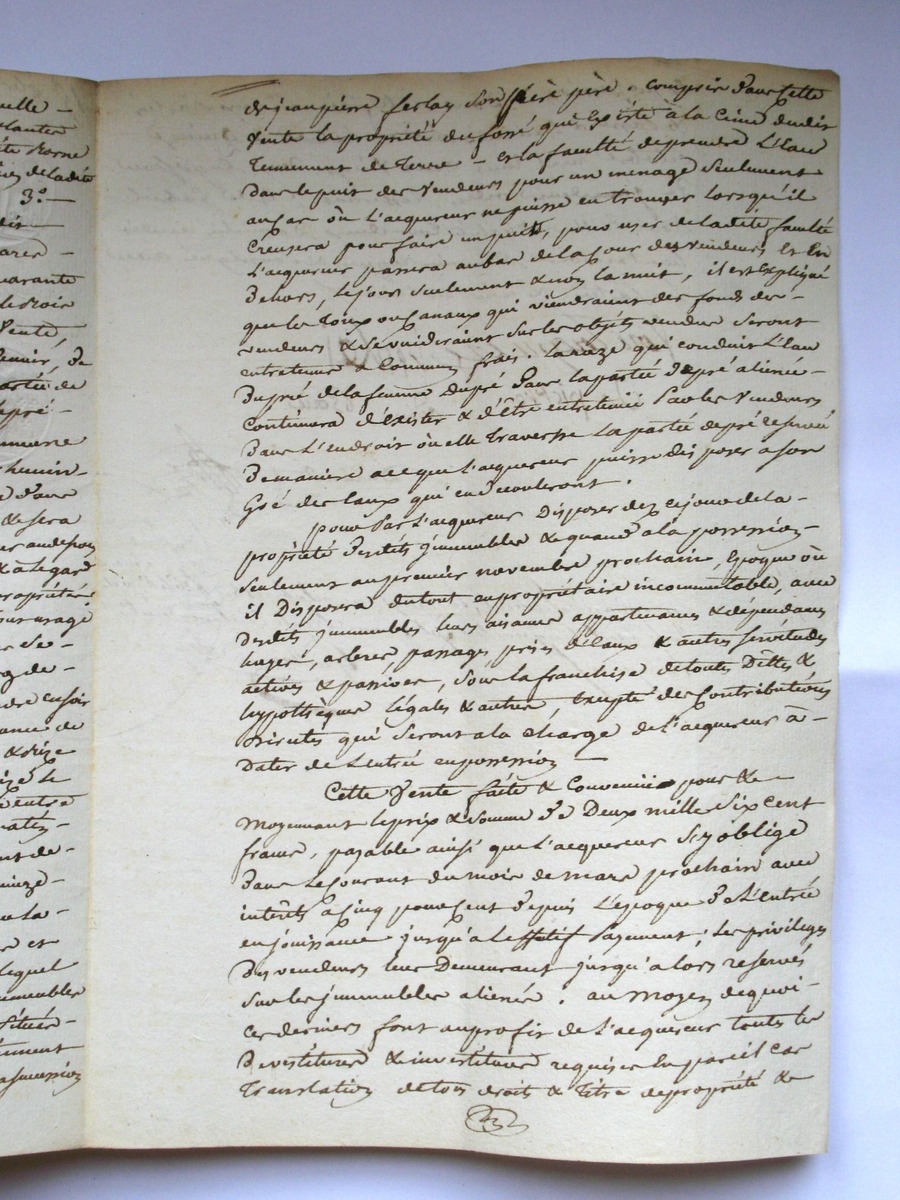 de jean pierre ferlay son père père. comprise dans cette
vente la propriété du fossé qui Existe à la Cime dudit
Tennement de Terre — et la faculté de prendre L'Eau
dans le puit des vendeurs pour un menage seulement
au cas où L'acquereur ne puisse en trouver lorsqu'il
Creusera pour faire un puits, pour user de ladite faculté
L'acquereur passera au bas de la Cour des vendeurs et En
dehors, le jour seulement & non la nuit, il est Expliqué
que les Toux ou Canaux qui viendraient des fonds des —
vendeurs & se vuideraient sur les objets vendus seront
entretenus à Communs frais. La raze qui conduit L'Eau
du pré de la femme dupré dans la partie de pré aliénée —
Continuera d'exister & d'être entretenue par les Vendeurs
dans L'Endroit où elle traverse la partie de pré reservée
de maniere a ce que L'acquereur puisse disposer a son
Gré des Eaux qui en decouleront.
pour par L'acquereur Disposer dez ce jour de la —
propriété desdits jmmeubles & quand a la possession —
seulement au premier novembre prochain, Epoque où
il Disposera du tout en propriétaire incommutable, avec
desdits jmmeubles leurs aisances appartenances & dependances
usages, arbres, passages, prises d'Eaux & autres servitudes
actives & passives, sous la franchise de toutes Dettes &
hypotheques légales & autres, Excepté des Contributions
Directes qui seront a la charge de L'acquereur à —
Dater de L'entrée en possession —
Cette Vente faite & Convenue pour & —
Moyennant le prix & somme De Deux mille six cent
francs, payable ainsi que L'acquereur s'y oblige
dans le Courant du mois de mars prochain avec
intérêts a Cinq pour Cent depuis L'époque de L'Entrée
en jouissance jusqu'a Leffetif payement; les privileges
des vendeurs leur Demeurant jusqu'a lors reservés
sur les jmmeubles alienés. au moyen de quoi —
ces derniers font au profit de L'acquereur toutes les
devestitures & investitures requises En pareil cas
Translation de tous droits & titre de propriété &
uelle —
lanter
3.° —
dit —
uarante
Vente,
artie de
mmune
hemin —
& sera
& a legard
ropriétés
our usage
er se —
ance de
& dize
entre
nt de —
uinze —
u la —
e et
lequel
mmeubles
située —
nement